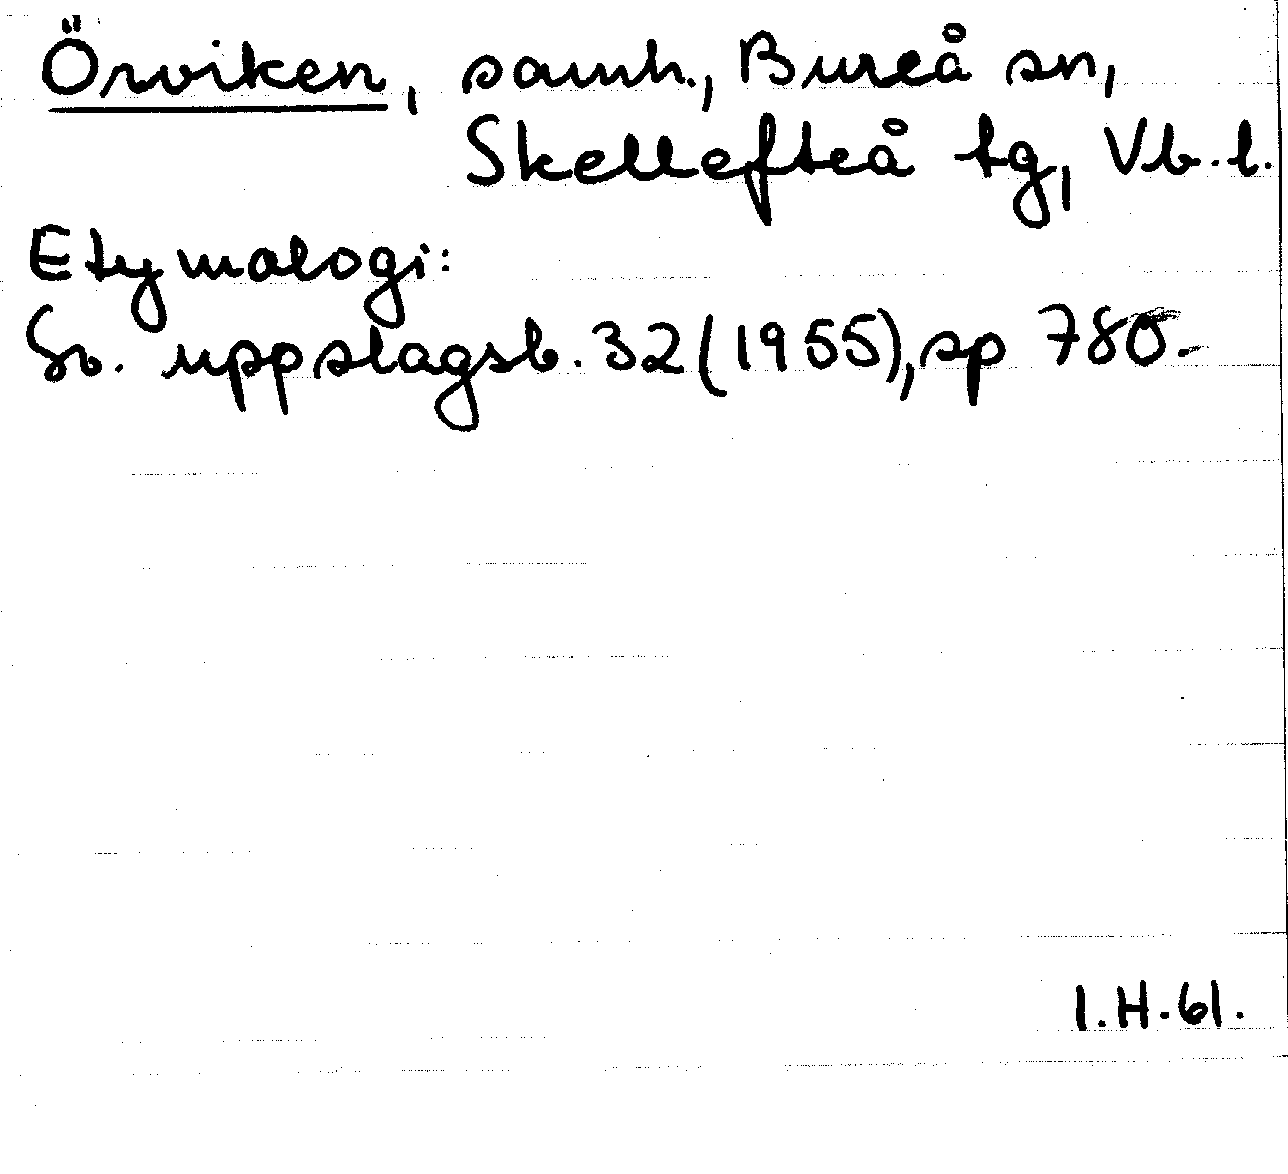 Örviken, samh., Bureå sn,
Skellefteå tg, Vb. l.
Etymologi:
Sv. uppslagsb. 32 (1955), sp 780.
I.H. 61.